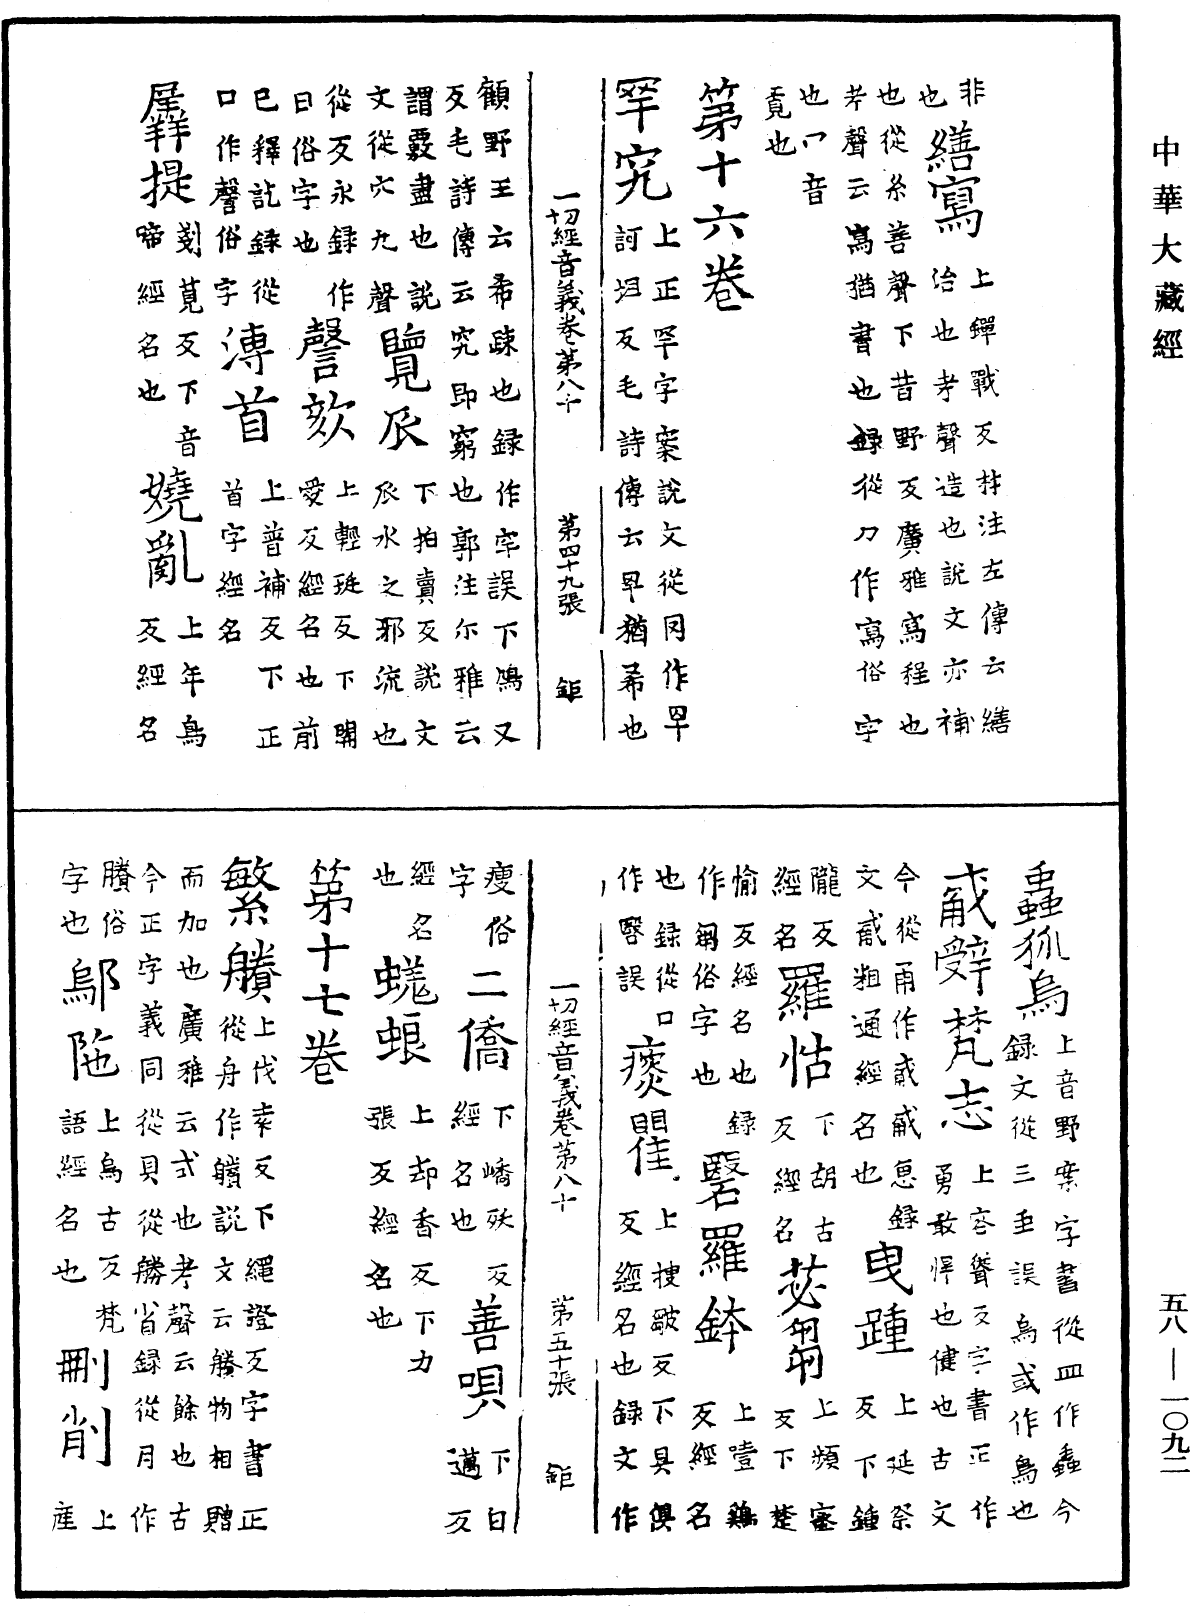 中華大藏經
非
也繕寫上鐔戰反杜注左傳云繕
治也考聲造也說文亦補
也從糸善聲下昔野反廣雅寫程也
考聲云寫猶書也錄從刀作寫俗字
也冖音
覓也
第十六卷
罕究上正罕字案說文從网作罕
訶坦反毛詩傳云罕猶希也
一切經音義卷第八十 第四十九張 鉅
顧野王云希疎也錄作罕誤下鳩又
反毛詩傳云究即窮也郭注尒雅云
謂覈盡也說
文從穴九聲覽𠂢下拍賣反說文
𠂢水之邪流也
從反永錄作
曰俗字也謦欬上輕珽反下開
愛反經名也前
已釋訖錄從
口作謦俗字溥首上普補反下正
首字經名
羼提剗莧反下音
啼經名也嬈亂上年鳥
反經名
五八—一〇九二
蟁狐烏上音野案字書從皿作蠱今
錄文從三虫誤烏或作鳥也
𢧢辭梵志上容聳反字書正作
勇敢悍也健也古文
今從甬作
文𢧢粗通經名也曳踵上延祭
反下鍾
隴反
經名羅怙下胡古
反經名苾芻上頻蜜
反下楚
愉反經名也錄
作芻俗字也醫羅鉢上壹鷄
反經名
也錄從口
作醫誤瘦瞿上搜皺反下具俱
反經名也錄文作
一切經音義卷第八十 第五十張 鉅
瘦俗
字二僑下嶠祅反
經名也善唄下白
邁反
經名
也蜣蜋上却香反下力
張反經名也
第十七卷
繁賸上伐袁反下繩證反字書正
從舟作賸說文云賸物相贈
而加也廣雅云弌也考聲云餘也古
今正字義同從貝從朕省錄從月作
賸俗
字也鄔陁上烏古反梵
語經名也刪削上
產